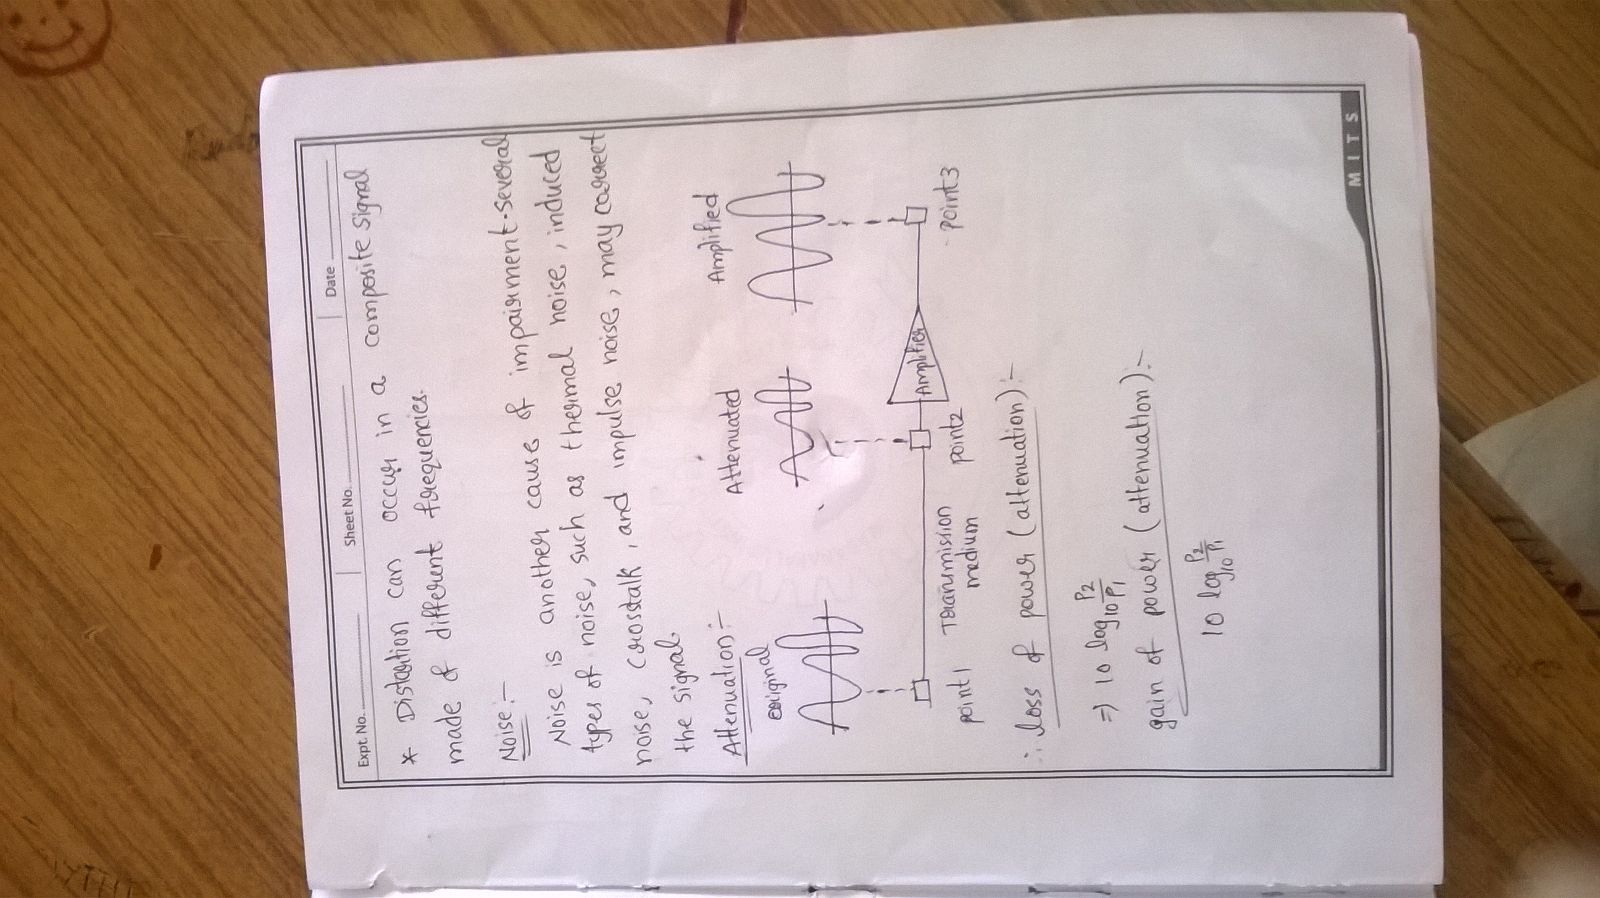 Expt. No. Sheet No. Date
* Distortion can occur in a composite signal
made of different frequencies.
Noise :-
Noise is another cause of impairment. Several
types of noise, such as thermal noise, induced
noise, crosstalk, and impulse noise, may correct
the signal.
Attenuation :-
Original Attenuated Amplified
Amplifier
point1 Transmission point2 point3
medium
∴ loss of power (attenuation) :-
⇒ 10 log₁₀ P2/P1
gain of power (attenuation) :-
10 log₁₀ P2/P1
MITS